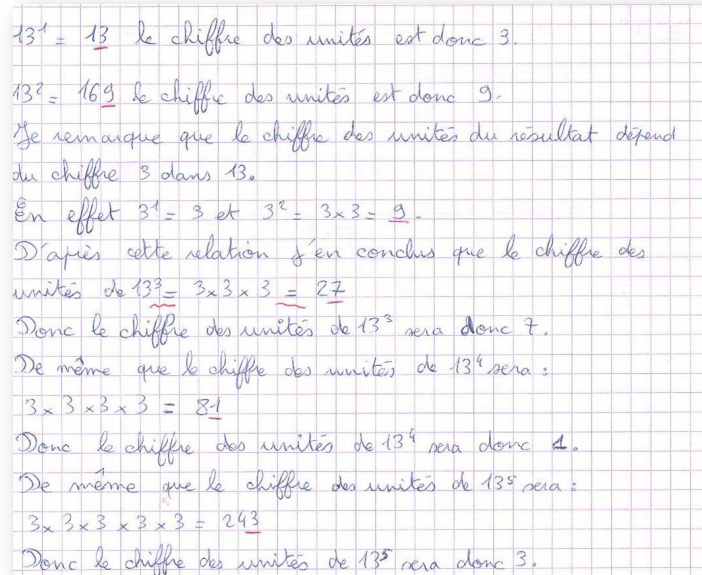 13¹ = 13 le chiffre des unités est donc 3.
13² = 169 le chiffre des unités est donc 9.
Je remarque que le chiffre des unités du résultat dépend
du chiffre 3 dans 13.
En effet 3¹ = 3 et 3² = 3 × 3 = 9.
D'après cette relation j'en conclus que le chiffre des
unités de 13³ = 3 × 3 × 3 = 27
Donc le chiffre des unités de 13³ sera donc 7.
De même que le chiffre des unités de 13⁴ sera :
3 × 3 × 3 × 3 = 81
Donc le chiffre des unités de 13⁴ sera donc 1.
De même que le chiffre des unités de 13⁵ sera :
3 × 3 × 3 × 3 × 3 = 243
Donc le chiffre des unités de 13⁵ sera donc 3.